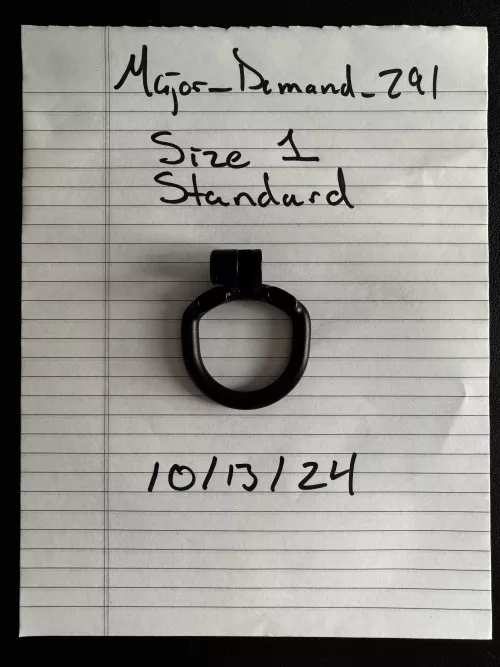 Major_Demand_291
Size 1
Standard
10/13/24